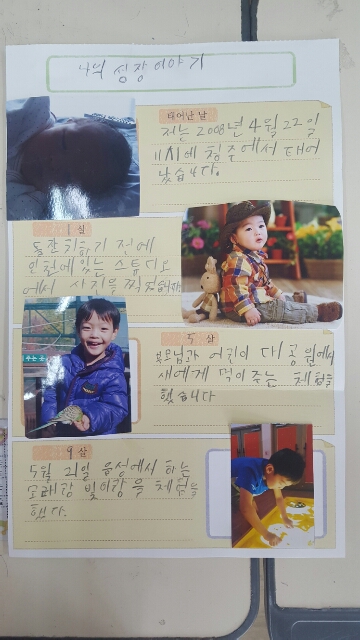 나의 성장이야기
태어난 날
저는 2008년 4월 22일
11시에 청주에서 태어
났습니다.
1 살
돌잔치하기 전에
인천에있는 스튜디오
에서 사진을 찍었습니다
5 살
부모님과 어린이 대공원에서
새에게 먹이 주는 체험을
했습니다
9 살
5월 21일 음성에서 하는
모래랑 빛이랑 을 체험을
했다.